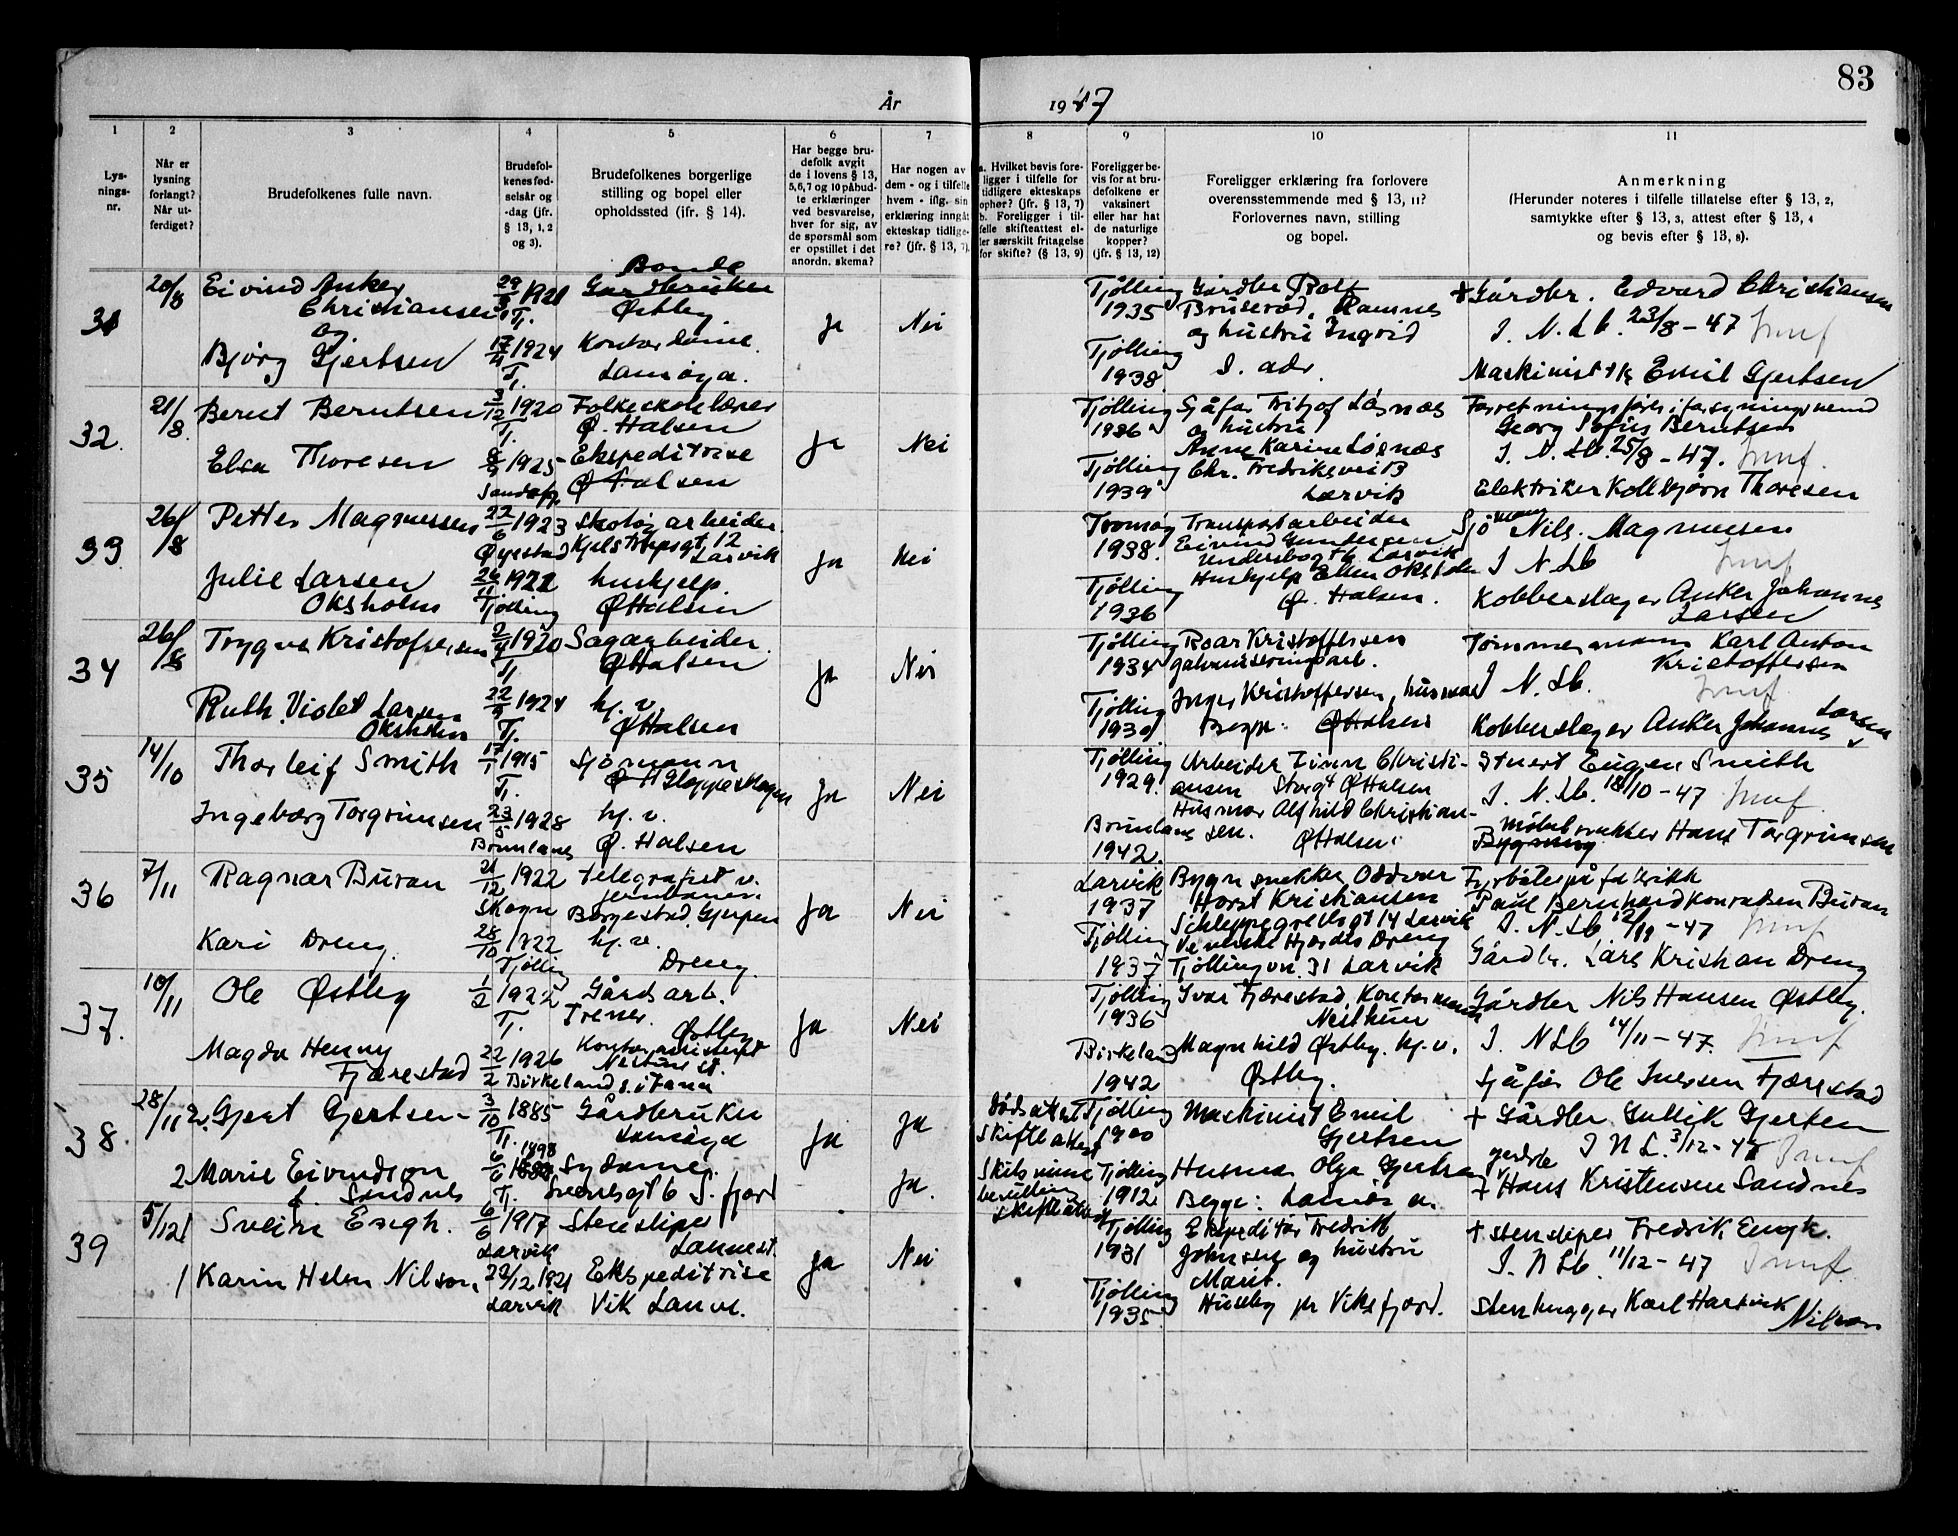 83
År
1947
1
2
3
4
5
6
7
8
9
10
11
Lys-
nings-
nr.
Når er
lysning
forlangt?
Når ut-
ferdiget?
Brudefolkenes fulle navn.
Brudefol-
kenes fød-
selsår og
-dag (jfr.
§ 13, 1, 2
og 3).
Brudefolkenes borgerlige
stilling og bopel eller
opholdssted (jfr. § 14).
Har begge bru-
defolk avgit
de i lovens § 13,
5, 6, 7 og 10 påbud-
te erklæringer
ved besvarelse,
hver for sig, av
de spørsmål som
er opstillet i det
anordn. skema?
Har nogen av
dem - og i tilfelle
hvem - iflg. sin
erklæring inngåt
ekteskap tidlige-
re? (jfr. § 13, 7).
a. Hvilket bevis fore-
ligger i tilfelle for
tidligere ekteskaps
ophør? (jfr. § 13, 7)
b. Foreligger i til-
felle skifteattest el-
ler særskilt fritagelse
for skifte? (§ 13, 9)
Foreligger be-
vis for at bru-
defolkene er
vaksinert
eller har hat
de naturlige
kopper?
(jfr. § 13, 12)
Foreligger erklæring fra forlovere
overensstemmende med § 13, 11?
Forlovernes navn, stilling
og bopel.
Anmerkning
(Herunder noteres i tilfelle tillatelse efter § 13, 2,
samtykke efter § 13, 3, attest efter § 13, 4
og bevis efter § 13, 8).
31
20/8
Eivind Anker
Christiansen
og
Bjørg Gjertsen
1921
Tj.
17/4 1924
Tj.
Bonde
Gardbruker
Østby
Kontordame
Lamøya.
Ja
Nei
Tjølling
1935
Tjølling
1938
Gårdbr Rolf
Bruserød, Ramnes
og hustru Ingrid
S. adr.
+ Gårdbr. Edvard Christiansen
I. N. Lb. 23/8 - 47
Maskinist Emil Gjertsen
32.
21/8
Bernt Berntsen
Elsa Thoresen
3/12 1920
Tj.
1925
Sandefj.
Folkeskolelærer
Ø. Halsen
Ekspeditrise
Ø Halsen
Ja
Nei
Tjølling
1936
Tjølling
1939
Sjåfør Fritjof Løsnæs
og hustru
Anne Karine Løsnæs
Chr. Fredriksvei 13
Larvik
Forretningsfører i forsyningsnemd
Georg Sofus Berntsen
I. N. Lb. 25/8 - 47.
Elektriker Kolbjørn Thoresen
33.
26/8
Petter Magnussen
Julie Larsen
Oksholm
22/6 1923
Øyestad
26/11 1922
Tjølling
Skotøyarbeider
12
Larvik
hushjelp.
Ø Halsen
Ja
Nei
Tromøy
1938.
Tjølling
1936
Transportarbeider
Eivind Gundersen
Larvik
Hushjelp Ellen Oksholm
Ø. Halsen.
Sjømann Nils Magnussen
I N Lb
Kobberslager Anker Johannes
Larsen
34
26/8
Trygve Kristofersen
Ruth Violet Larsen
Oksholm
1920
Tj
22/9 1924
Tj.
Sagarbeider.
Ø Halsen
hj. v.
Ø Halsen
Ja
Nei
Tjølling
1934
Tjølling
1939
Roar Kristoffersen
galvaniseringsarb.
Inger Kristoffersen, husmor
Begge: Ø Halsen
Tømmermann Karl Anton
Kristoffersen
I N. Lb.
Kobberslager Anker Johannes Larsen
35
14/10
Thorleif Smith
Ingeborg Torgrimsen
17/1 1915
Tj.
23/5 1928
Brunlanes
Sjømann
Gloppeskogen
hj. v.
Ø. Halsen
Ja
Nei
Tjølling
1929.
Brunlanes
1942.
Arbeider Finn Christi-
ansen Storgt Ø Halsen
Husmor Alfhild Christian-
sen. Ø Halsen.
Stuert Eugen Smith
I. N. Lb. 18/10 - 47
Møbelsnekker Hans Torgrimsen
36
7/11
Ragnar Buran
Kari Dreng.
21/12 1922
Skogn
28/10 1922
Tjølling
telegrafist v.
jernbanen
Borgestad, Gjerpen
hj. v.
Dreng.
Ja
Nei
Larvik
1937
Tjølling
1937
Bygn snekker Oddvar
Horst Kristiansen
Schleppegrellsgt 14 Larvik
Hjørdis Dreng
Tjøllingvn. 31 Larvik
Fyrbøter på fabrikk
Paul Bernhard Konradsen Buran
I. N. Lb 12/11 - 47
Gårdbr. Lars Kristian Dreng
37.
10/11
Ole Østby
Magda Henny
Fjærestad
1/2 1922
Tj.
22/2 1926
Birkeland
Gårdsarb.
Trener
Østby
Kontorassistent
Ja
Nei
Tjølling
1936
Birkeland
1942
Ivar Fjærestad, Kontormann
Nesttun
Magnhild Østby. hj. v.
Østby.
Gårdbr Nils Hansen Østby.
I. N Lb 14/11 - 47.
Sjåfør Ole Iversen Fjærestad
38.
28/11
2. Gjert Gjertsen
2 Marie Eivindson
f. Sandnes
3/10 1885
Tj.
6/6 1898
Tj.
Gårdbruker
Lamøya
Sydame
S. fjord
Ja
Ja
Ja.
Dødsattest
Skifteattest
Skilsmisse
bevilling
Skifteattest
Tjølling
1900
Tjølling
1912
Maskinist Emil
Gjertsen
Husmor Olga Gjertsen
Begge: Lamøya.
+ Gårdbr Gullik Gjertsen
I N L. 3/12 - 47
+ Hans Kristensen Sandnes
39
5/12
Svein Engh.
1 Karin Helen Nilsen,
6/6 1917
Larvik
22/12 1921
Larvik
Stensliper
Lauvest.
Ekspeditrise
Vik Lauve.
Ja
Nei
Tjølling
1931
Tjølling
1935
Ekspeditør Fredrik
Johnsen og hustru
Marit.
Huseby pr Viksfjord.
+ stensliper Fredrik Engh.
I. N Lb. 11/12 - 47
Stenhugger Karl Hartvik
Nilsen